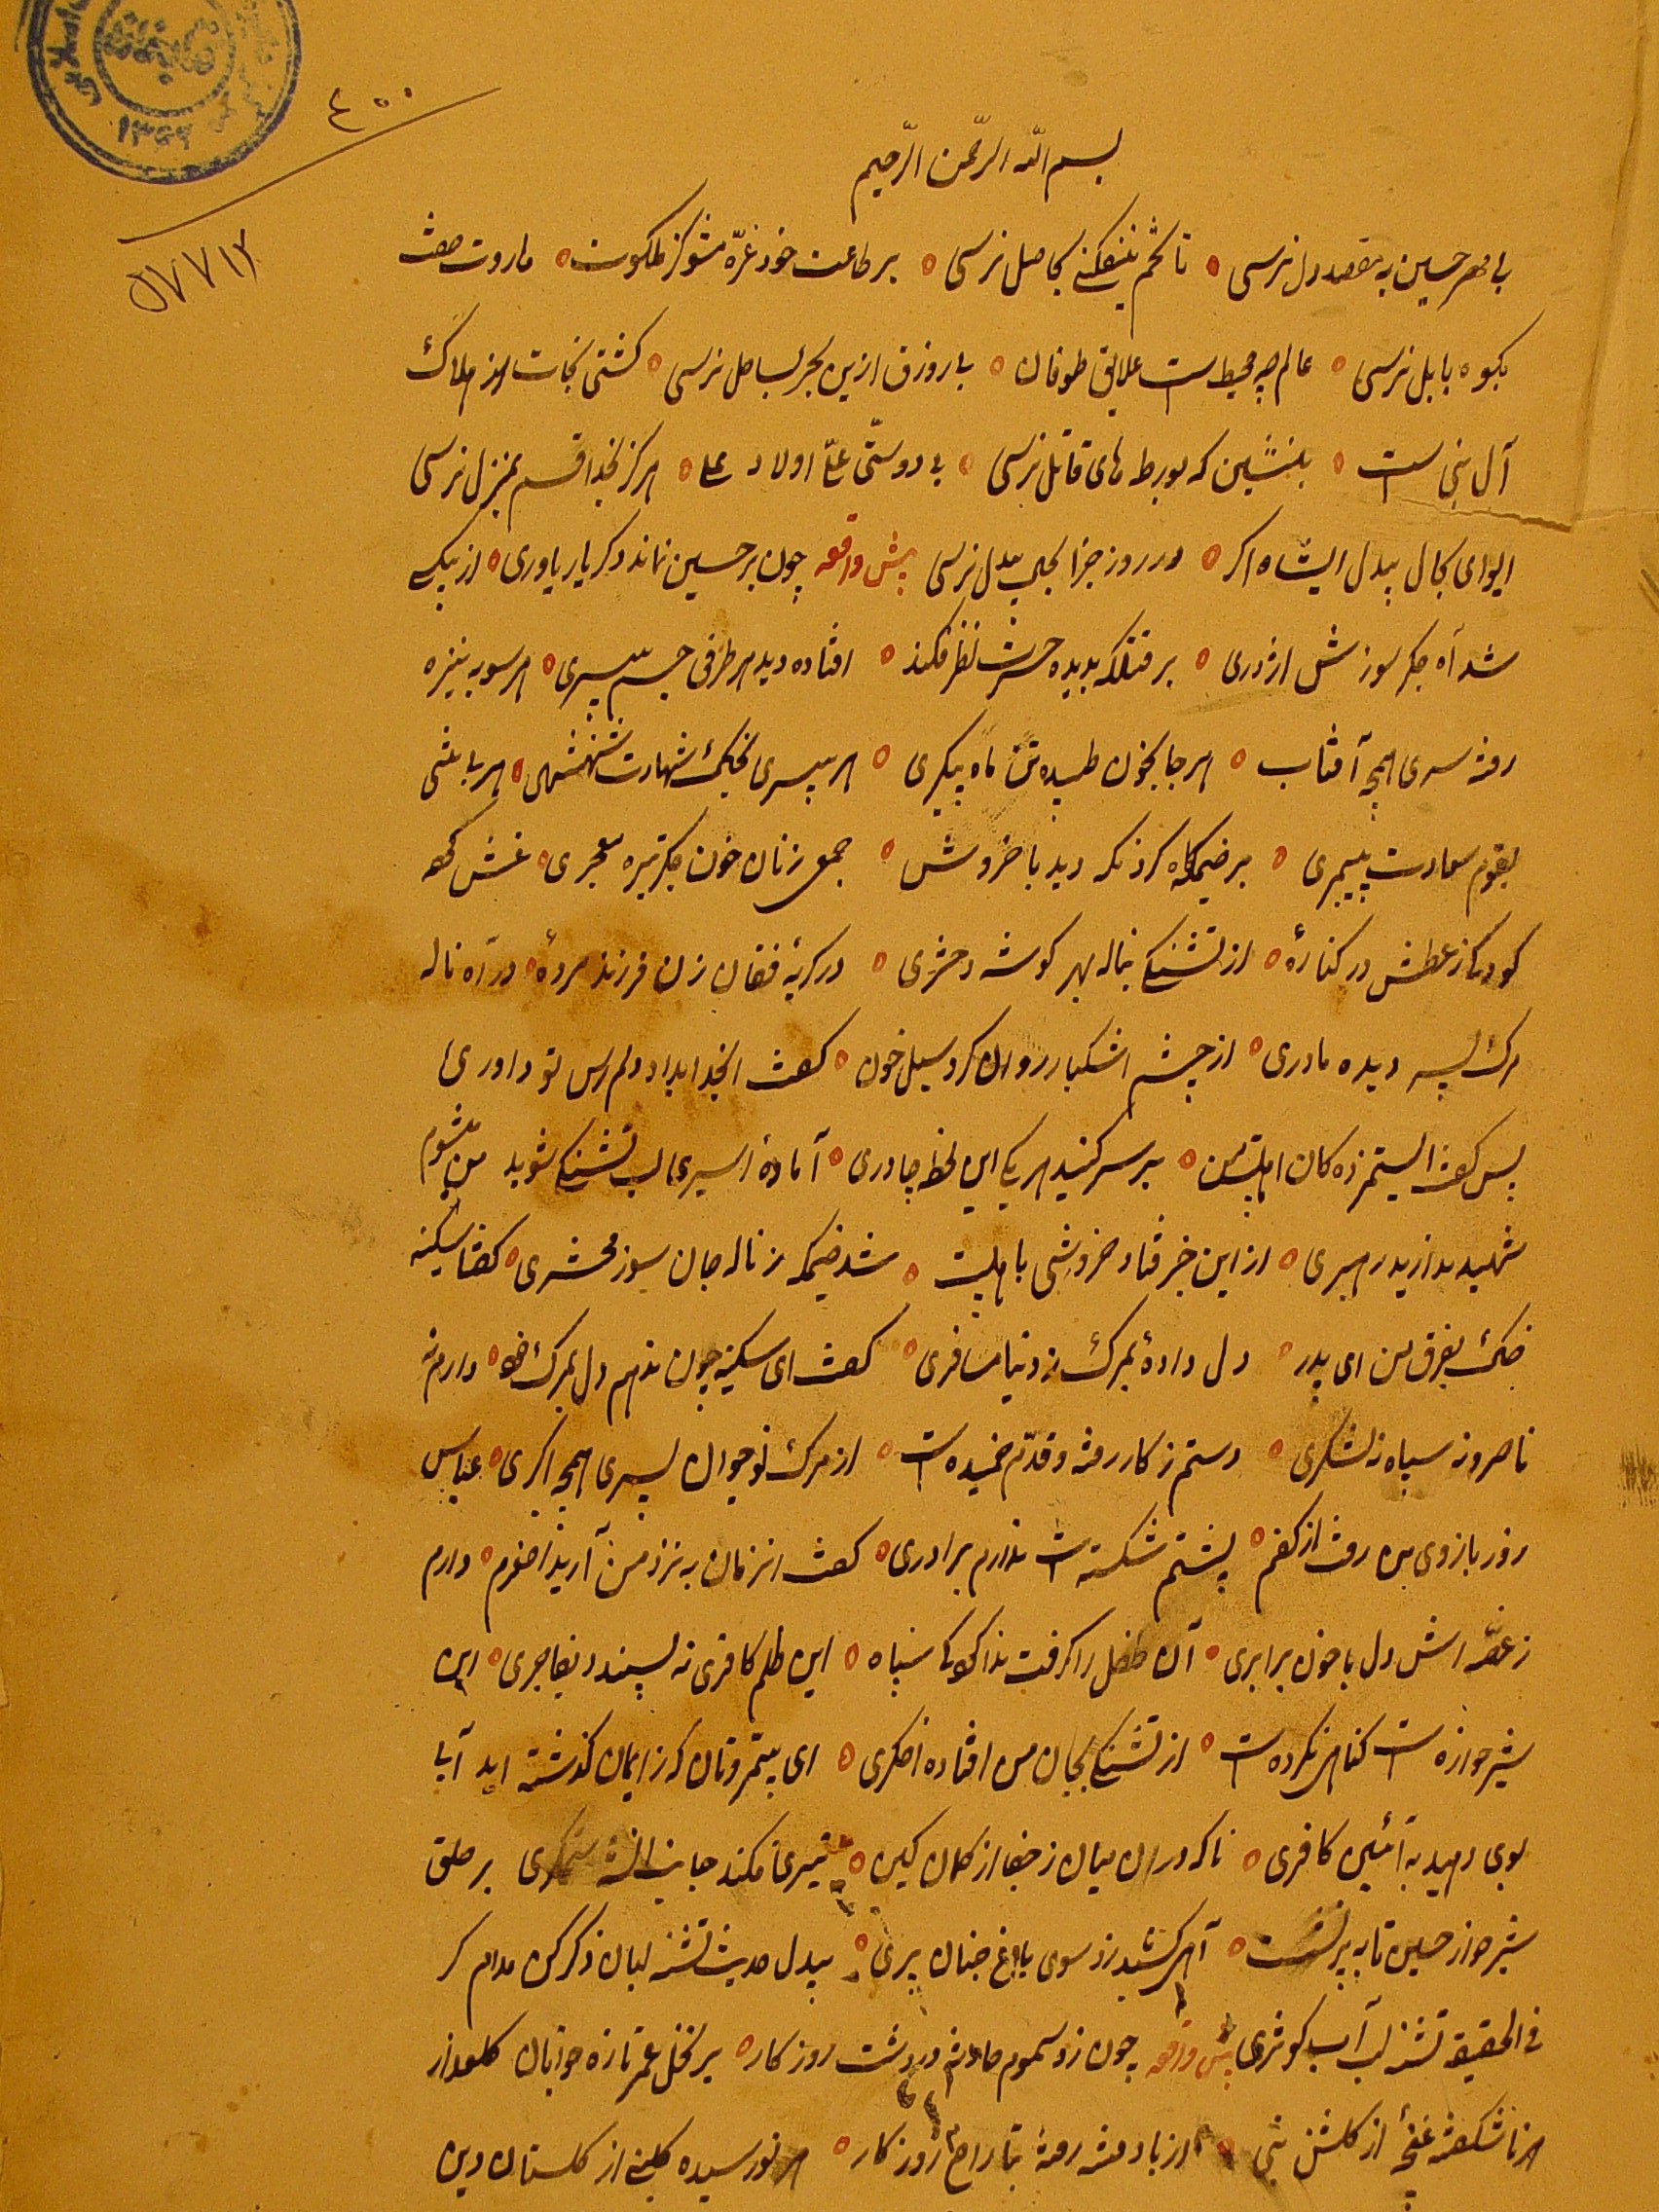 ۴۰۰
۵۷۷۱۲
۱۳۴۹
بسم الله الرحمن الرحیم
بی مهر حسین به مقصد دل نرسی ه تا تخم نیفکنی بحاصل نرسی ه بر طاعت خود غرّه مشو کز ملکوت ه ماروت صفت
بکوه بابل نرسی ه عالم چو محیط است علایق طوفان ه بی زورق ازین بحر بساحل نرسی ه کشتی نجات از هلاک
آل نبی است ه بنشین که بورطه های قاتل نرسی ه بی دوستی علی و اولاد علی ه هرکز بخدا قسم بمنزل نرسی
ایوای بحال بیدل ایشاه اکر ه در روز جزا بیدل نرسی پیش واقعه چون بر حسین نماند دکر یار یاوری ه از بیکسی
شد آه جکر سوزش اژدری ه بر قتلکه بدیده حسرت نظر فکند ه افتاده دید هر طرفی جسم بیسری ه هر سو به نیزه
رفته سری همچو آفتاب ه هر جا بخون طپیده تن ماه پیکری ه هر بیسری بخاک شهادت شهنشهی ه هر بی تنی
بقوم سعادت پیمبری ه بر خیمکاه کرد نکه دید با خروش ه جمع زنان خون جکر تیره معجری ه غش کرده
کودک ز عطش در کناره ه از تشنکی بناله بهر کوشه دختری ه در کریه فغان زن فرزند مرده ه در آه ناله
مرک پسر دیده مادری ه از چشم اشکبار روان کرد سیل خون ه کفت ایخدا بداد دلم رس تو داوری
پس کفت ایستمزده کان اهلبیت من ه بر سر کنید هر یکی این لحظه چادری ه آماده اسیری لب تشنکی شوید من میشوم
شهید ندارید رهبری ه از این خبر فتاد خروشی باهلبیت ه شد خیمکه ز ناله جان سوز محشری ه کفتا سکینه
خاک بفرق من ای پدر ه دل داده بمرک ز دنیا مسافری ه کفت ای سکینه چون ندهم دل بمرک خود ه دارم نه
ناصر و نه سپاه نه لشکری ه دستم ز کار رفته و قدم خمیده است ه از مرک نوجوان پسری همچو اکبری ه عباس
زور بازوی من رفت از کفم ه پشتم شکسته است ندارم برادری ه کفت انزمان به نزد من آرید اصغرم ه دارم
ز غصّه اش دل با خون برابری ه آن طفل را کرفت ندا کرد کی سپاه ه این ظلم کافری نه پسندد بفاجری ه این
شیرخواره است کناهی نکرده است ه از تشنکی بجان من افتاده اخکری ه ای بیمروتان که ز ایمان کذشته اید آبی
بوی دهید به آئین کافری ه ناکه دران میان ز جفا از کمان کین ه تیری فکند جانب ستمکری بر حلق
شیرخوار حسین تا به پر نشست ه آهی کشید زد سوی باغ جنان پری ه بیدل حدیث تشنه لبان ذکر کن مدام کر
فی الحقیقه تشنه لب آب کوثری پیش واقعه چون زد سموم حادثه در دشت روزکار ه بر نخل عمر تازه جوانان کلعذار
هر ناشکفته غنچه از کلشن نبی ه از باد فتنه رفته بتاراج روزکار ه هر نورسیده کلبنی از کلستان دین